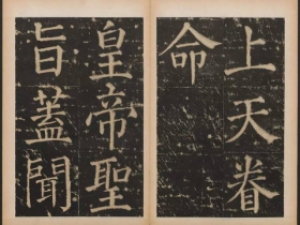 上天眷
命
皇帝聖
旨蓋聞